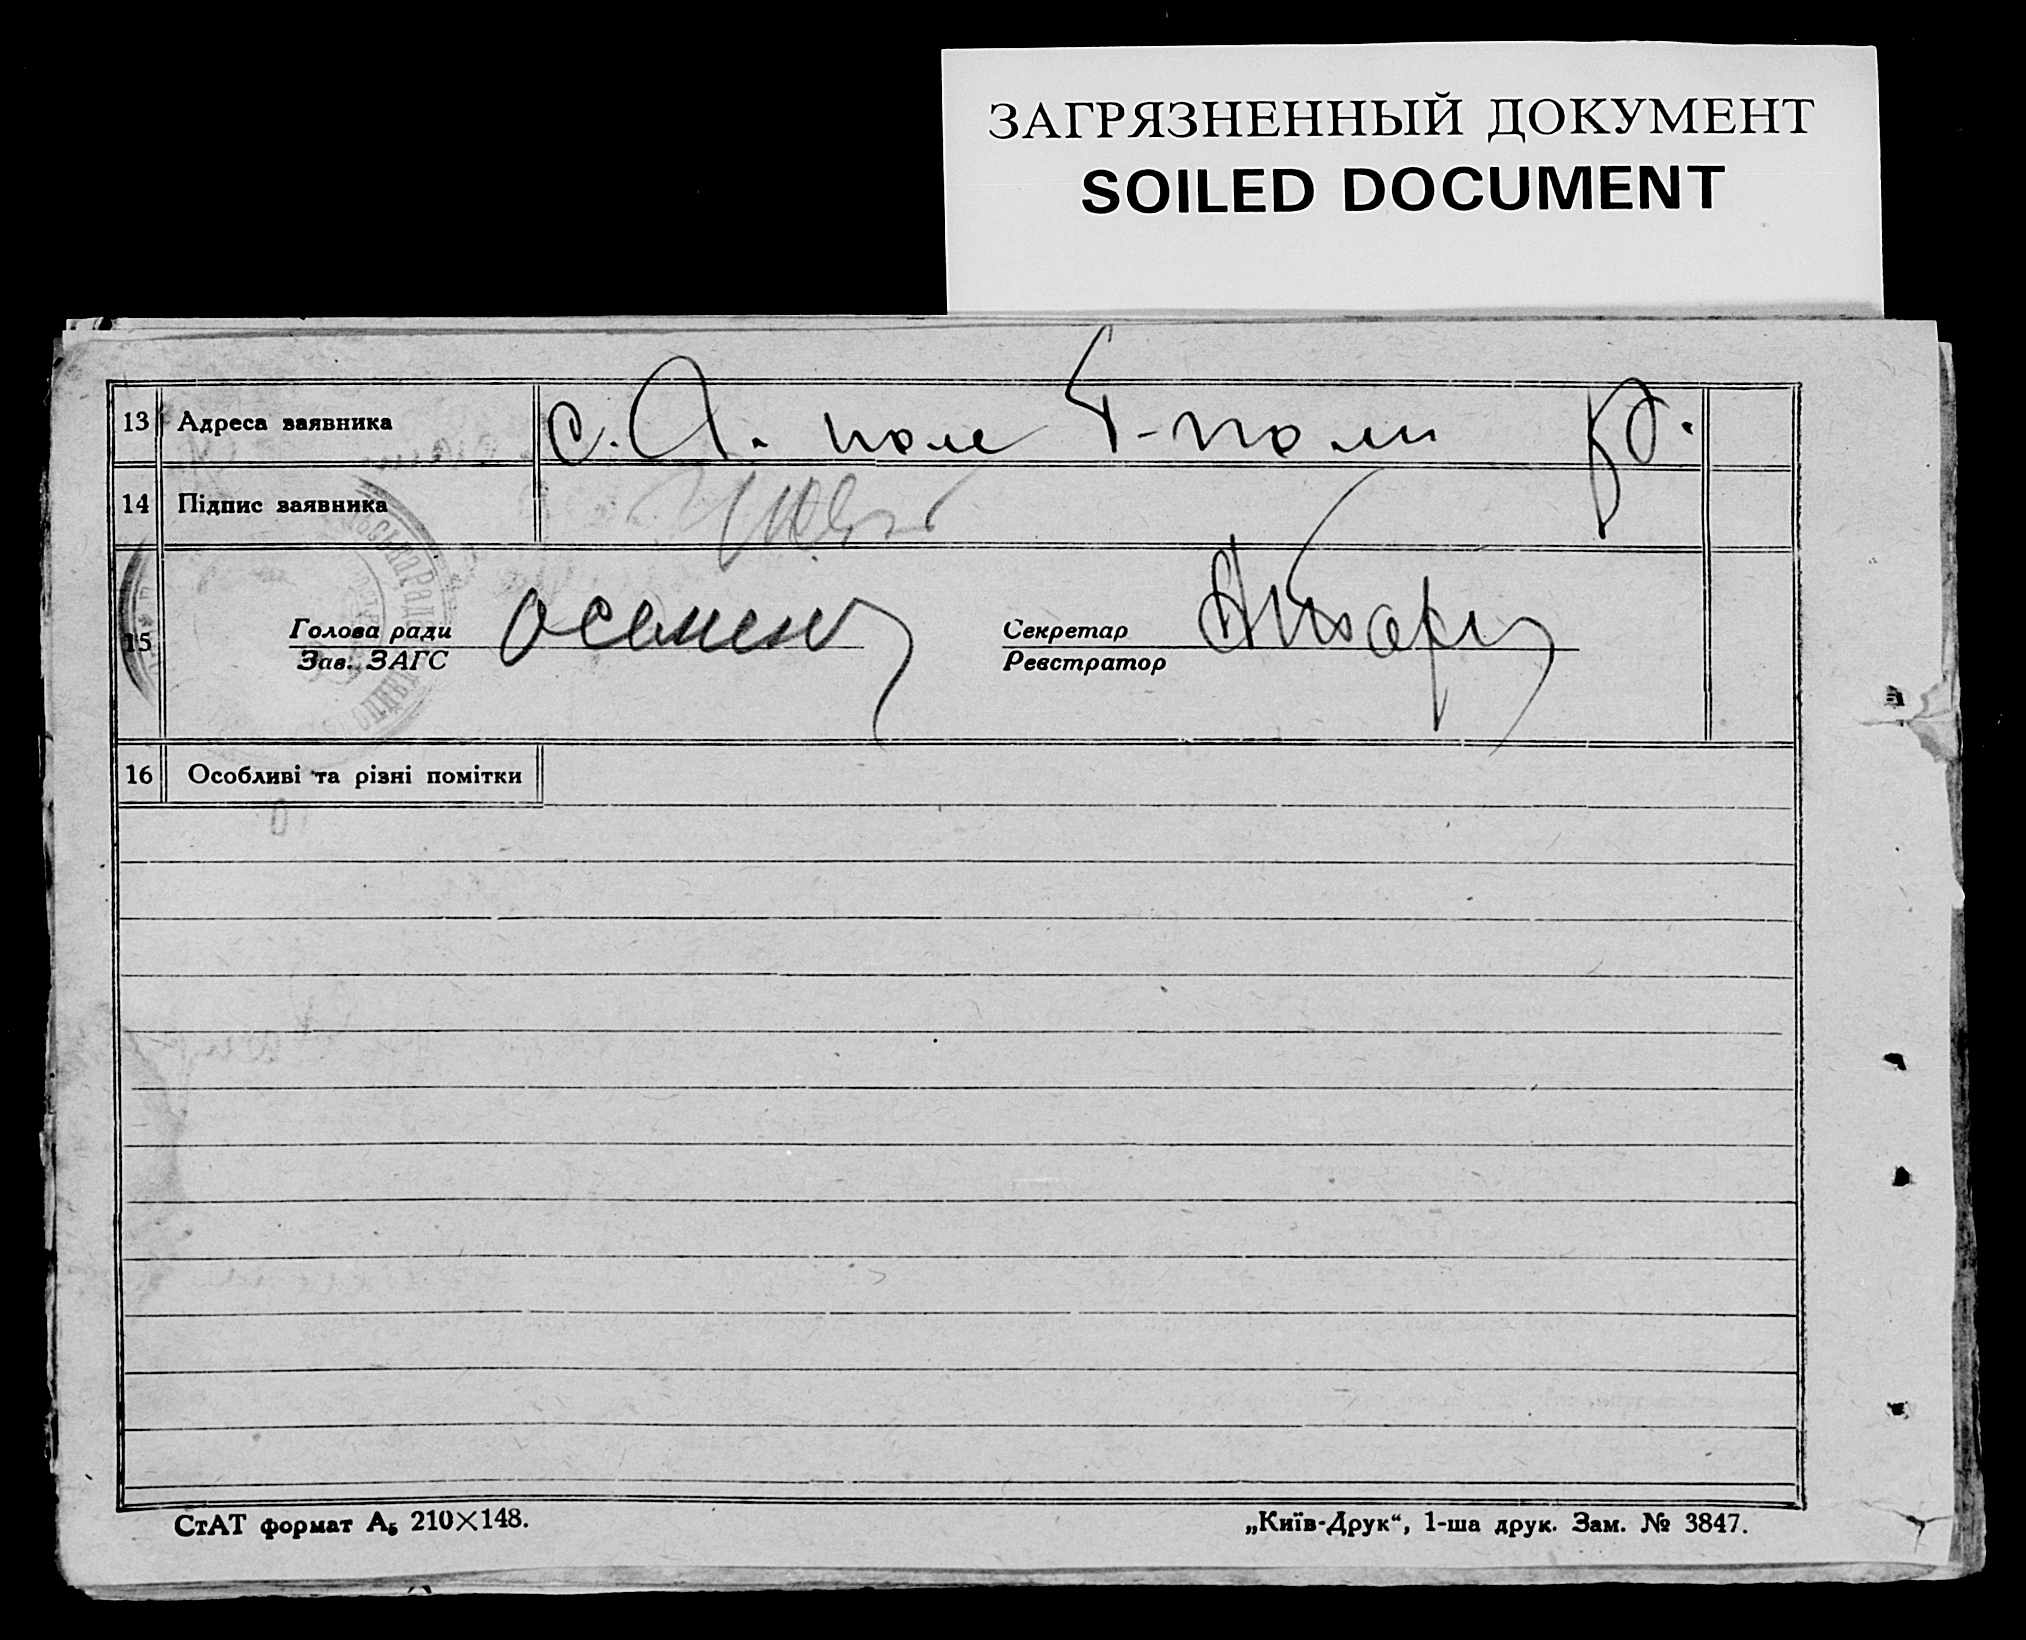 ЗАГРЯЗНЕННЫЙ ДОКУМЕНТ
SOILED DOCUMENT
13 Адреса заявника с. Я. поле Т-поли
14 Підпис заявника
15 Голова ради Секретар
Зав. ЗАГС Реєстратор
16 Особливі та різні помітки
СтАТ формат А₅ 210×148.
„Київ-Друк“, 1-ша друк. Зам. № 3847.